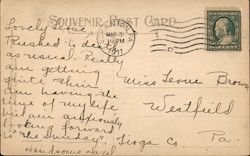 SOUVENIR POST CARD
MAR 31
PM
1911
Lovely
"Rushed" to death
as usual. Really
am getting
quite thin
am having the
time of my life
but am anxiously
looking forward
to the
Miss Leone Brown
Westfield
Tioga Co. Pa.